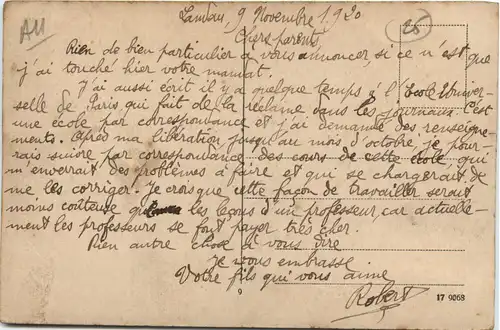 All
Landau, 9 Novembre 1920
25
Chers parents,
Rien de bien particulier à vous annoncer, si ce n'est que
j'ai touché hier votre mandat.
J'ai aussi écrit il y a quelque temps à l'Ecole Univer-
selle de Paris qui fait de la réclame dans les journaux. C'est
une école par correspondance et j'ai demandé des renseigne-
ments. Après ma libération jusqu'au mois d'octobre, je pour-
rais suivre par correspondance des cours de cette école qui
m'enverrait des problèmes à faire et qui se chargerait de
me les corriger. Je crois que cette façon de travailler serait
moins coûteuse que les leçons d'un professeur, car actuelle-
ment les professeurs se font payer très cher.
Rien autre chose à vous dire
Je vous embrasse.
Votre fils qui vous aime
Robert
9
17 9068